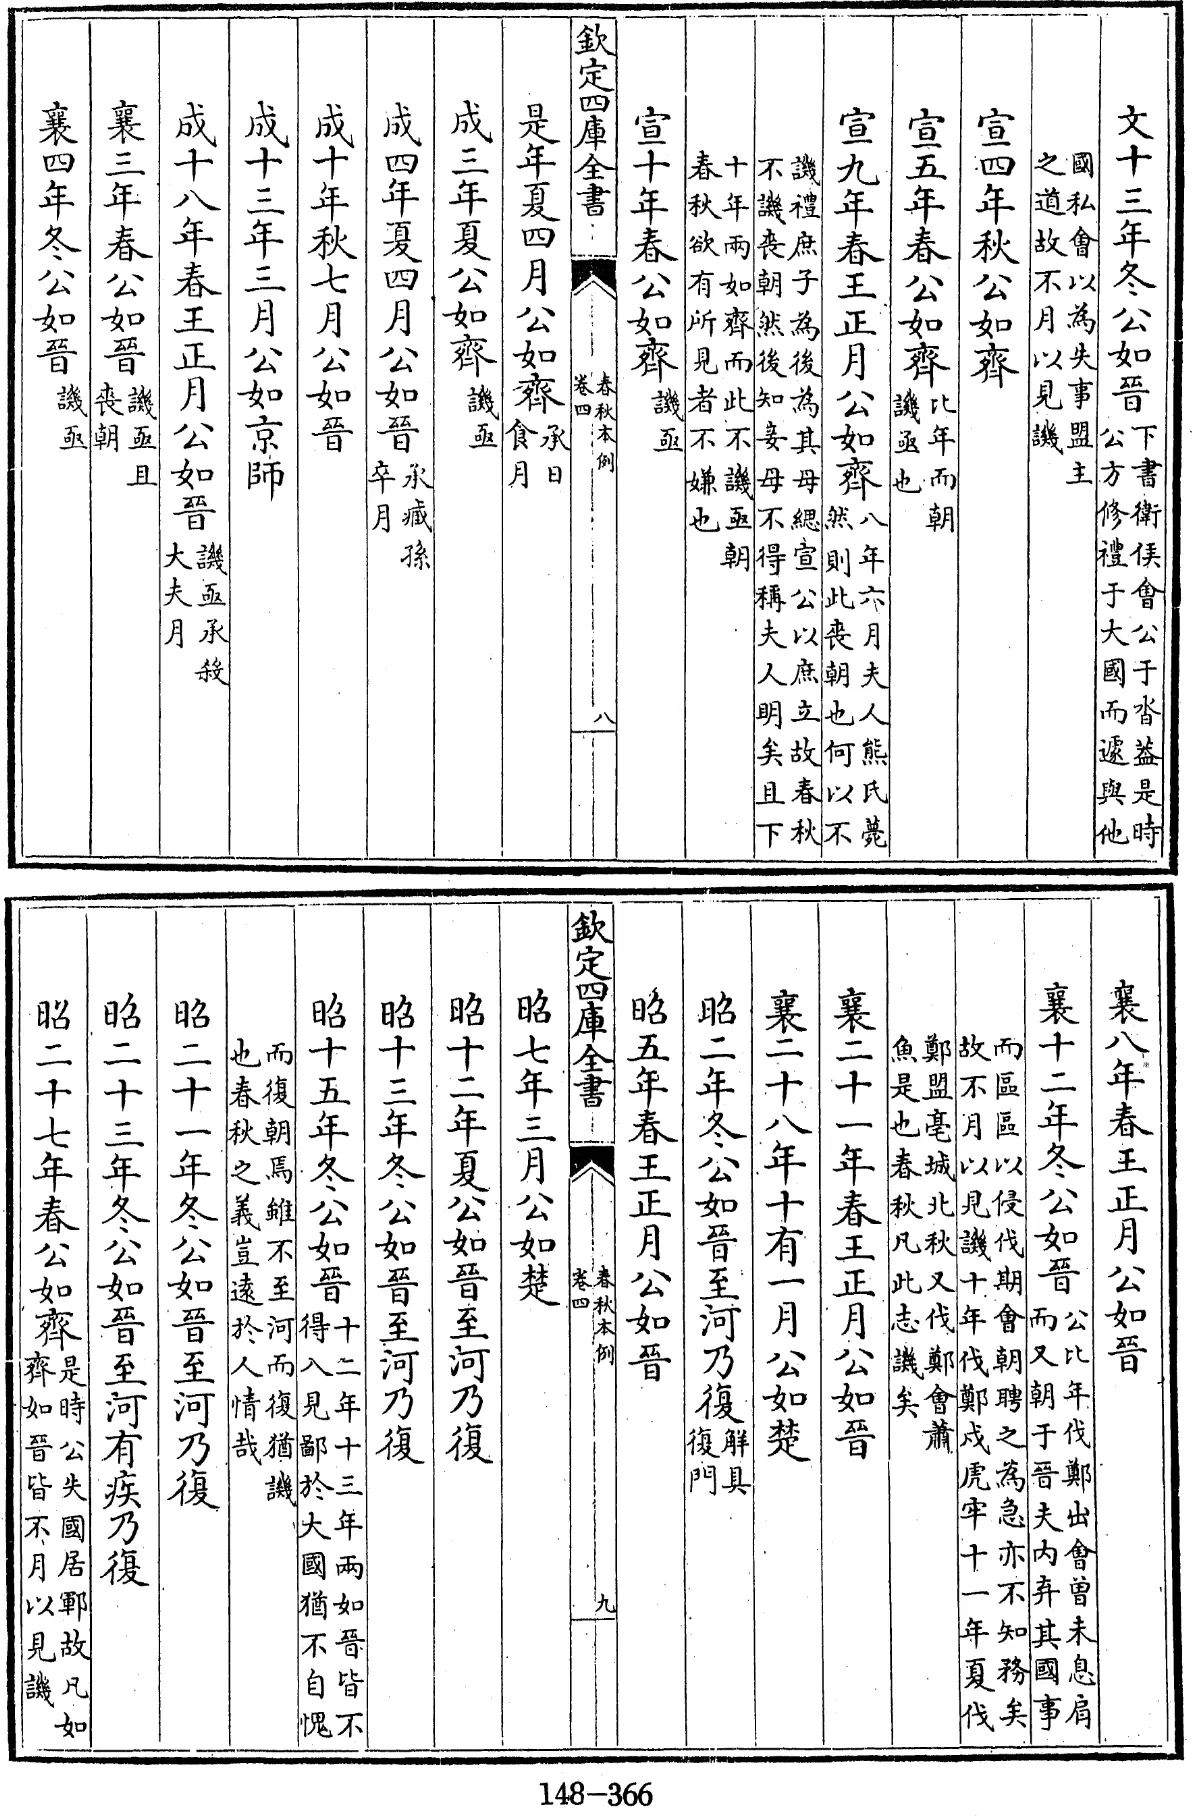 文十三年冬公如晉下書衛侯會公于沓葢是時
公方修禮于大國而遽與他
國私會以為失事盟主
之道故不月以見譏
宣四年秋公如齊
宣五年春公如齊比年而朝
譏亟也
宣九年春王正月公如齊八年六月夫人熊氏薨
然則此喪朝也何以不
譏禮庶子為後為其母緦宣公以庶立故春秋
不譏喪朝然後知妾母不得稱夫人明矣且下
十年兩如齊而此不譏亟朝
春秋欲有所見者不嫌也
宣十年春公如齊譏亟
欽定四庫全書
春秋本例
卷四
八
是年夏四月公如齊承日
食月
成三年夏公如齊譏亟
成四年夏四月公如晉承臧孫
卒月
成十年秋七月公如晉
成十三年三月公如京師
成十八年春王正月公如晉譏亟承殺
大夫月
襄三年春公如晉譏亟且
喪朝
襄四年冬公如晉譏亟
襄八年春王正月公如晉
襄十二年冬公如晉公比年伐鄭出會曾未息肩
而又朝于晉夫内弃其國事
而區區以侵伐期會朝聘之為急亦不知務矣
故不月以見譏十年伐鄭戍虎牢十一年夏伐
鄭盟亳城北秋又伐鄭會蕭
魚是也春秋凡此志譏矣
襄二十一年春王正月公如晉
襄二十八年十有一月公如楚
昭二年冬公如晉至河乃復解具
復門
昭五年春王正月公如晉
欽定四庫全書
春秋本例
卷四
九
昭七年三月公如楚
昭十二年夏公如晉至河乃復
昭十三年冬公如晉至河乃復
昭十五年冬公如晉十二年十三年兩如晉皆不
得入見鄙於大國猶不自愧
而復朝焉雖不至河而復猶譏
也春秋之義豈遠於人情哉
昭二十一年冬公如晉至河乃復
昭二十三年冬公如晉至河有疾乃復
昭二十七年春公如齊是時公失國居鄆故凡如
齊如晉皆不月以見譏
148-366